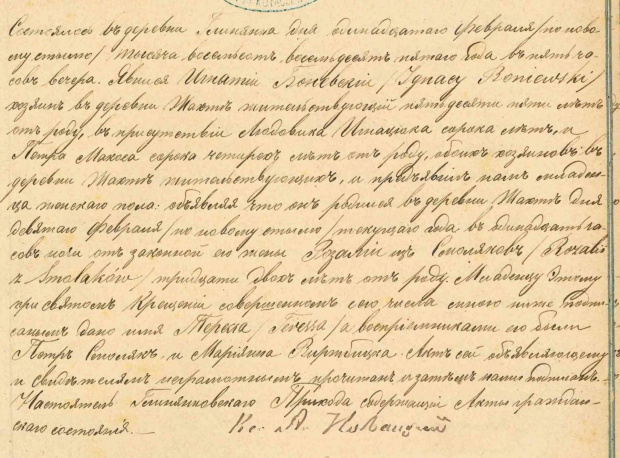 Состоялось въ деревни Глинянка дня одинадцатаго Февраля /по ново
му стилю/ тысяча восемьсотъ восемьдесятъ пятаго года въ пять ча
совъ вечера. Явился Игнатій Коневскій /Ignacy Koniewski/
хозяинъ въ деревни Жахтѣ жительствующій пятьдесяти пяти лѣтъ
отъ роду, въ присутствіи Людовика сорока лѣтъ, и
Петра Макоса сорока четырехъ лѣтъ отъ роду, обоихъ хозяиновъ въ
деревни Жахтѣ жительствующихъ, и предъявилъ намъ младен
ца женскаго пола: объявляя что онъ родился въ деревни Жахтѣ дня
девятаго Февраля /по новому стилю/ текущаго года въ одинадцать ча
совъ ночи отъ законной его жены Розаліи изъ Смоляковъ /Rozalii
z Smolaków/ тридцати двохъ лѣтъ отъ роду. Младенцу этому
при святомъ Крещеніи совершенномъ сего числа мною ниже подпи
саннымъ дано имя Тереса /Teressa/ а воспріемниками его были
Петръ Смолякъ и Маріянна. Актъ сей объявляющему
и свидѣтелямъ неграмотнымъ прочитанъ и затѣмъ нами подписанъ.—
Настоятель Глинянковскаго Прихода содержащій Акты граждан-
скаго состоянія.— Кс. А.